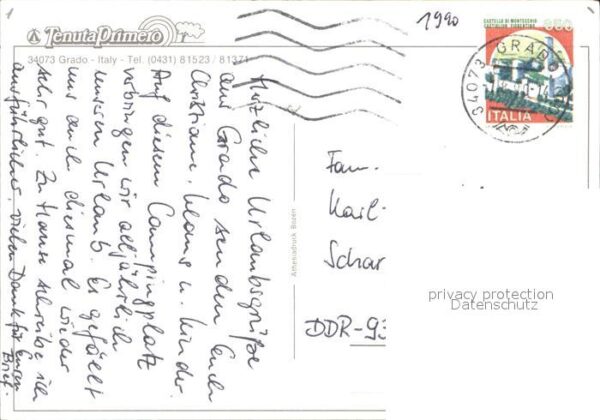 1990
Tenuta Primero
34073 Grado - Italy - Tel. (0431) 81523 / 81371
CASTELLO DI MONTECCHIO
CASTIGLION FIORENTINO
650
ITALIA
34073 GRADO
Herzliche Urlaubsgrüße
aus Grado senden Euch
Christiane, Klaus u. Kinder.
Auf diesem Campingplatz
verbringen wir alljährlich
unseren Urlaub. Es gefällt
uns auch diesmal wieder
sehr gut. Zu Hause schreibe ich
ausführlicher, vielen Dank für Euren
Brief.
Athesiadruck Bozen
Fam.
Karl-
Schar
DDR-93
privacy protection
Datenschutz